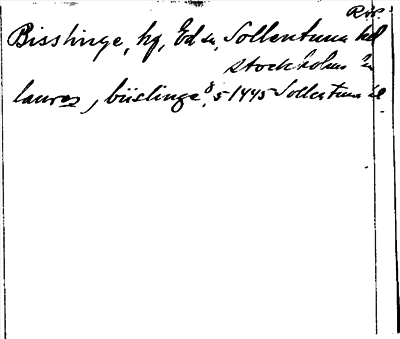 Rös.
Bisslinge, hg, Ed sn, Sollentuna hd
Stockholms ln
laurez, bislinge 8/5 1445 Sollentuna